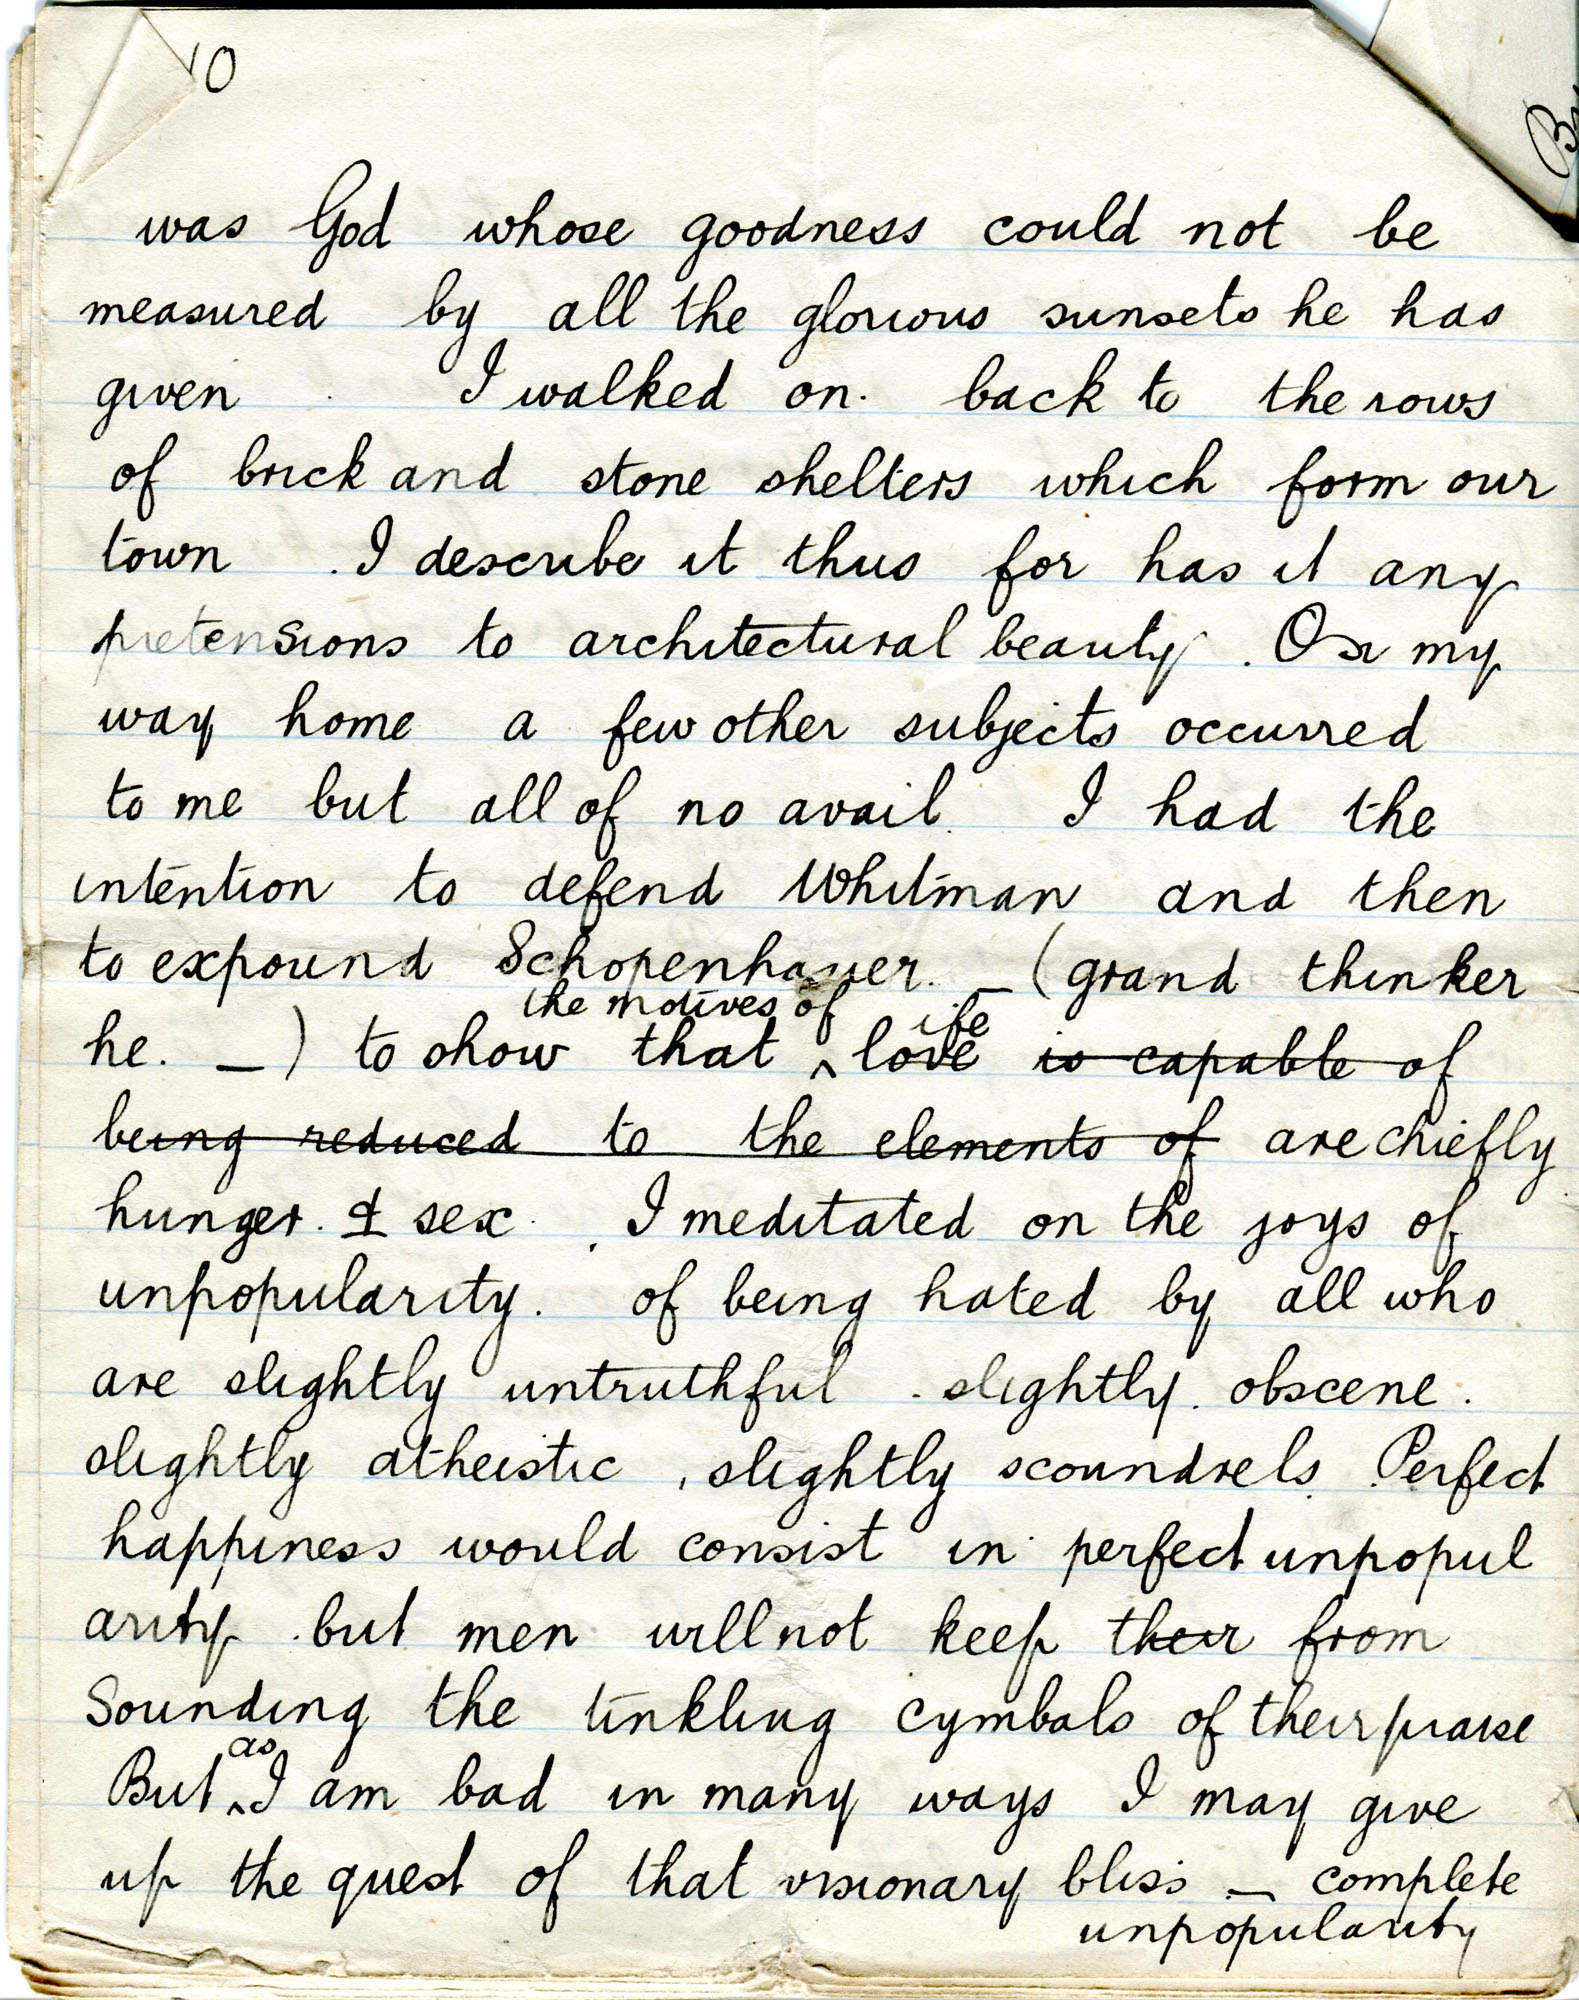 10
was God whose goodness could not be
measured by all the glorious sunsets he has
given . I walked on. back to the rows
of brick and stone shelters which form our
town . I describe it thus for has it any
pretensions to architectural beauty . On my
way home a few other subjects occurred
to me but all of no avail. I had the
intention to defend Whitman and then
to expound Schopenhauer. — (grand thinker
the motives of ife
he. — ) to show that ^ love is capable of
being reduced to the elements of are chiefly
hunger. & sex . I meditated on the joys of
unpopularity. of being hated by all who
are slightly untruthful . slightly. obscene .
slightly atheistic , slightly scoundrels. Perfect
happiness would consist in perfect unpopul
arity . but men will not keep their from
Sounding the tinkling cymbals of their praise
as
But ^ I am bad in many ways I may give
up the quest of that visionary bliss — complete
unpopularity